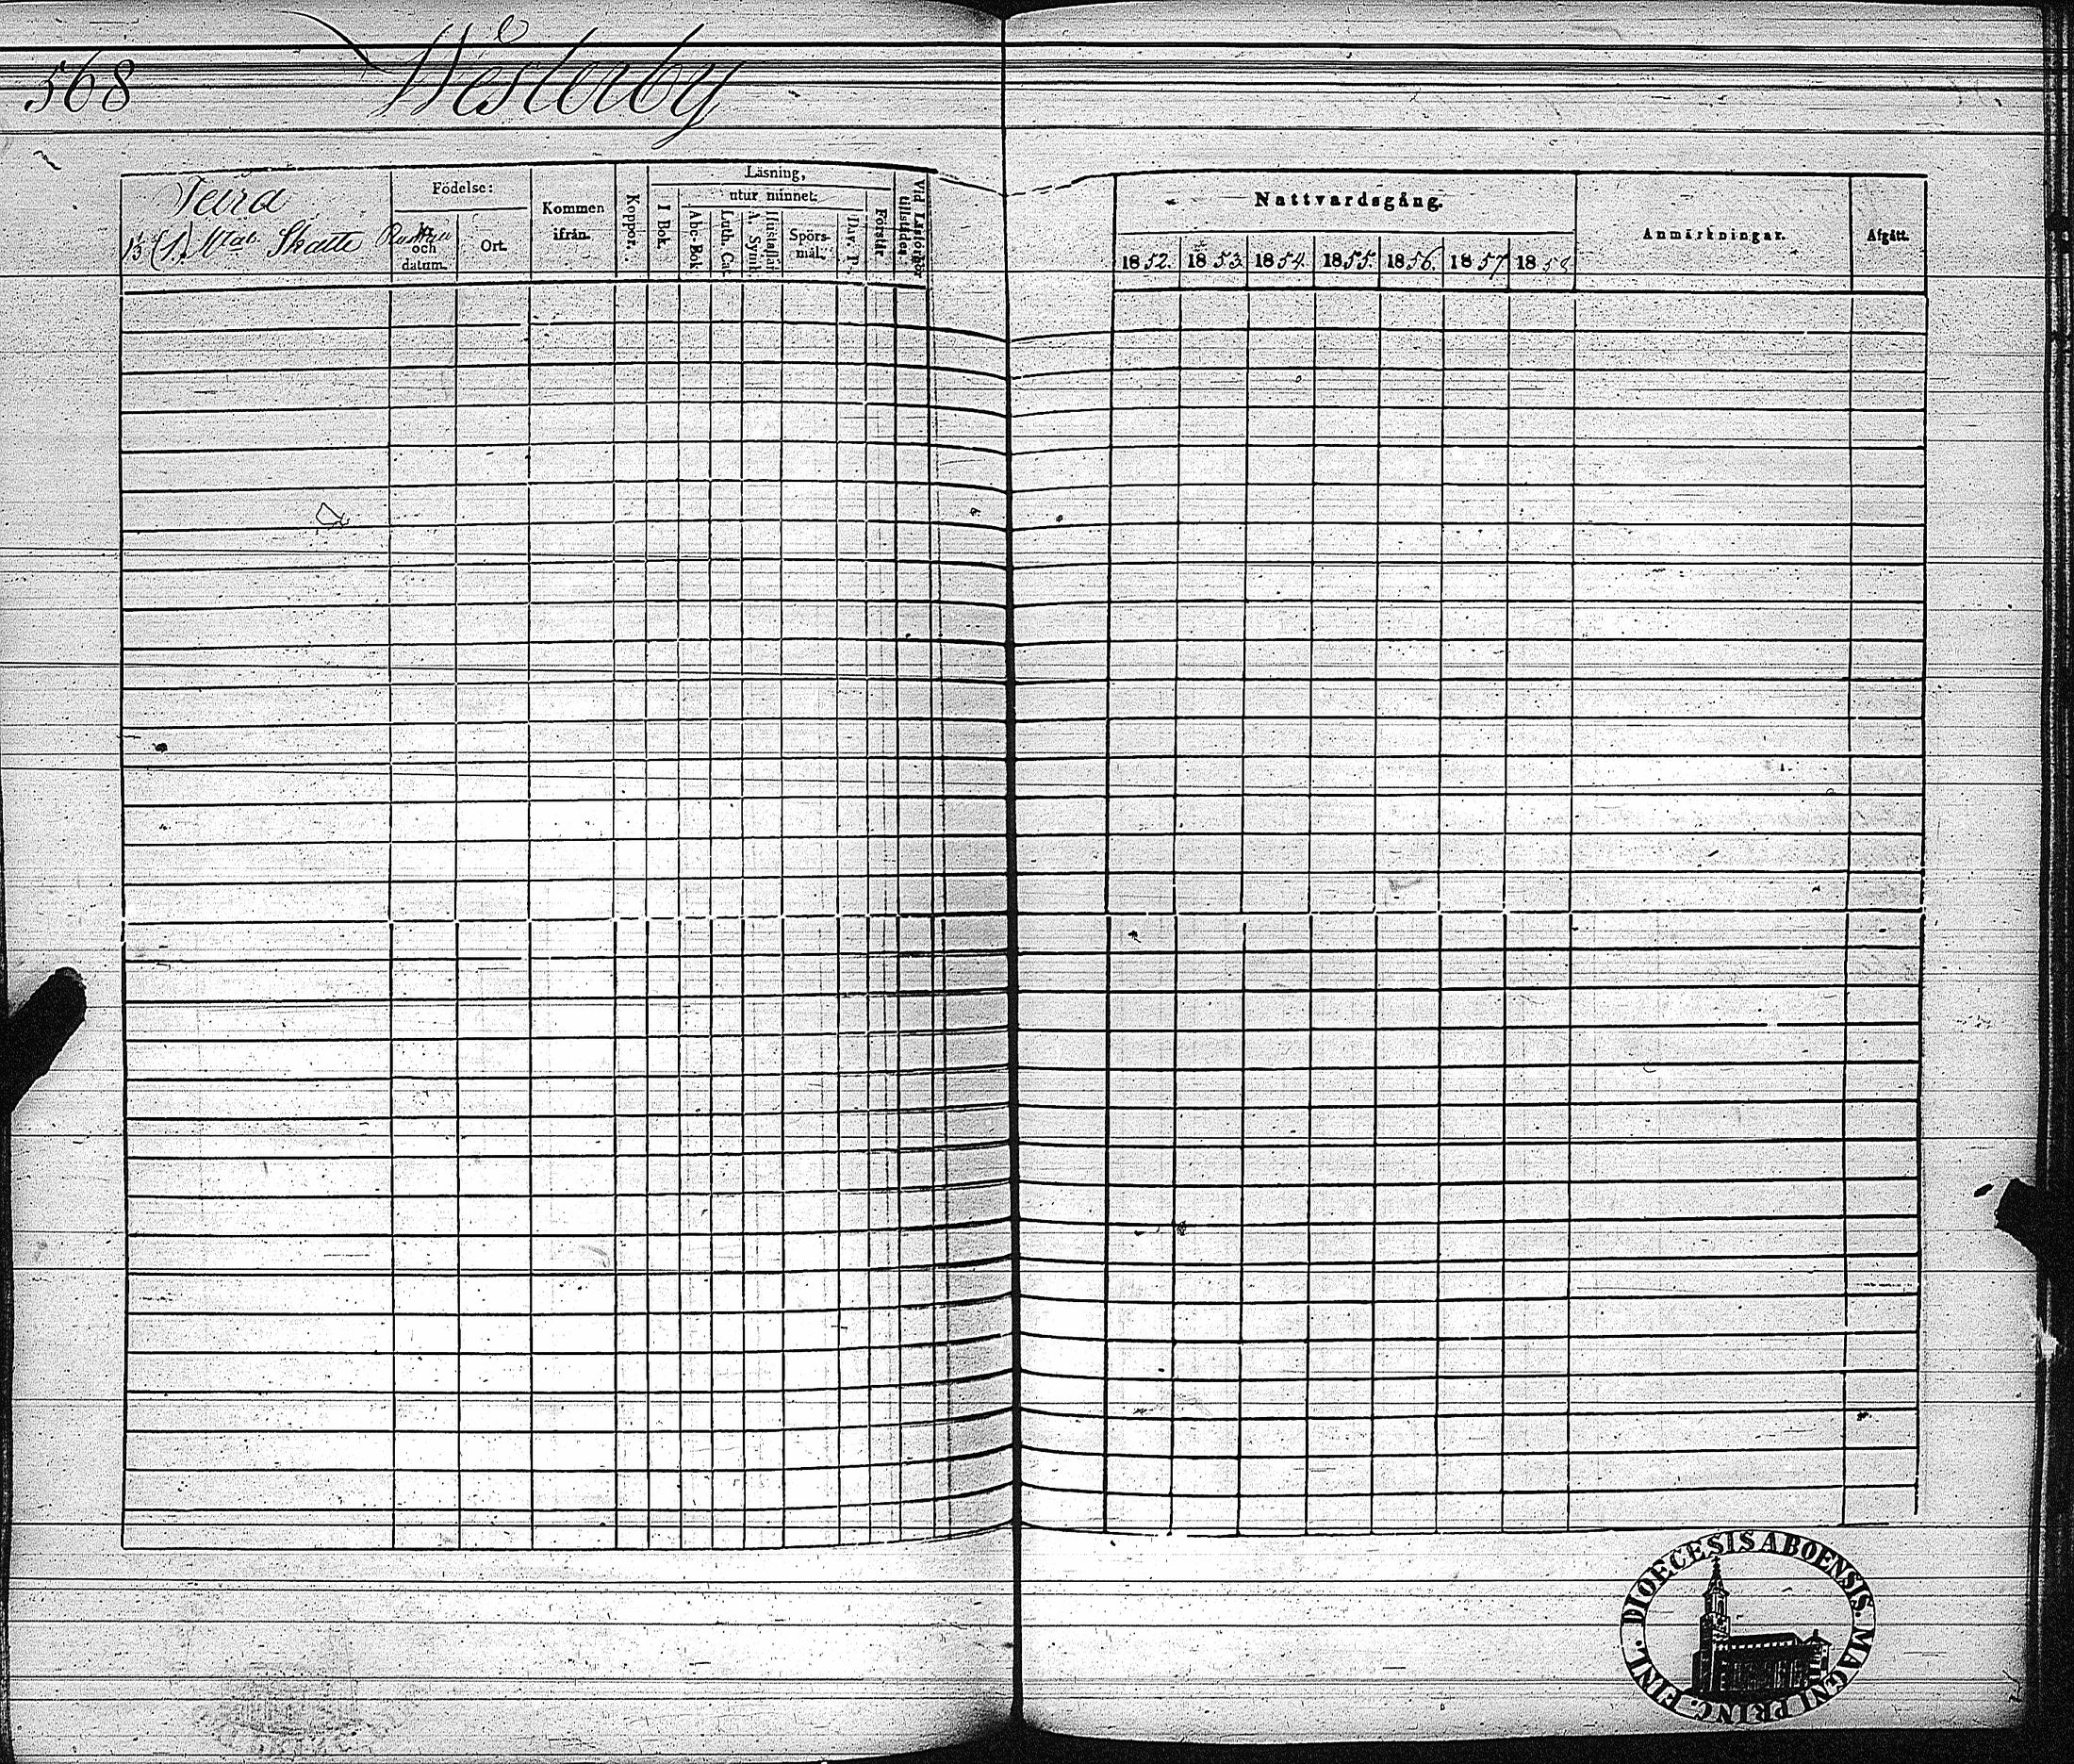 568
Westerby
Teira
1/3 (1.) Mtal. Skatte
Födelse:
År och datum.
Ort.
Kommen ifrån.
Koppor.
Läsning,
utur minnet:
I Bok.
Abc-Bok
Luth. Cat.
Hustaflan
A. Symb.
Spörsmål.
Förstår
Vid Läsförhör tillstädes.
Nattvardsgång.
1852.
1853.
1854.
1855.
1856.
1857
1858
Anmärkningar.
Afgått.
FINL. DIOECESIS ABOENSIS. MAGNI PRINC.